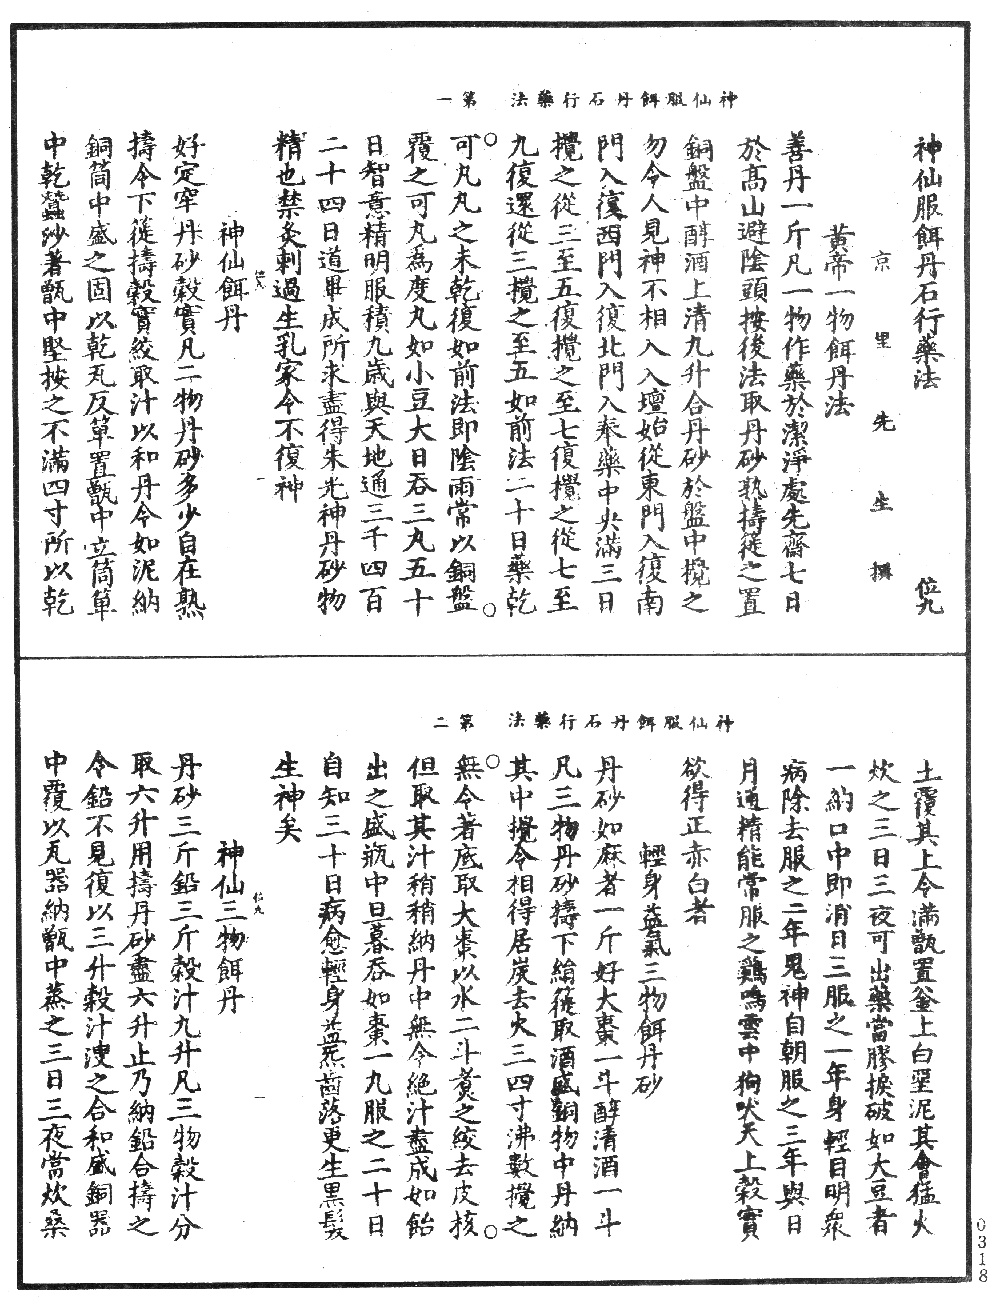 神仙服餌丹石行藥法　第一
神仙服餌丹石行藥法　位九
京里先生撰
黃帝一物餌丹法
善丹一斤凡一物作藥於潔淨處先齋七日
於高山避陰頭按後法取丹砂熟擣篵之置
銅盤中醇酒上清九升合丹砂於盤中攪之
勿令人見神不相入入壇始從東門入復南
門入復西門入復北門入奉藥中央滿三日
攪之從三至五復攪之至七復攪之從七至
九復還從三攪之至五如前法二十日藥乾
可丸丸之未乾復如前法即陰雨常以銅盤
覆之可丸為度丸如小豆大日吞三丸五十
日智意精明服積九歲與天地通三千四百
二十四日道畢成所求盡得朱光神丹砂物
精也禁灸刺過生乳家令不復神
神仙餌丹
好定窂丹砂穀實凡二物丹砂多少自在熟
擣令下篵擣穀實絞取汁以和丹令如泥納
銅筒中盛之固以乾瓦反箄置甑中立筒箄
中乾蠶沙著甑中堅按之不滿四寸所以乾
神仙服餌丹石行藥法　第二
土覆其上令滿甑置釜上白堊泥其會猛火
炊之三日三夜可出藥當膠捩破如大豆者
一納口中即消日三服之一年身輕目明衆
病除去服之二年鬼神自朝服之三年與日
月通精能常服之雞鳴雲中狗吠天上穀實
欲得正赤白者
輕身益氣三物餌丹砂
丹砂如麻者一斤好大棗一斗醇清酒一斗
凡三物丹砂擣下絹篵取酒盛銅物中丹納
其中攪令相得居炭去火三四寸沸數攪之
無令著底取大棗以水二斗煑之絞去皮核
但取其汁稍稍納丹中無令絕汁盡成如飴
出之盛瓶中旦暮吞如棗一丸服之二十日
自知三十日病愈輕身益炁齒落更生黑髮
生神矣
神仙三物餌丹
丹砂三斤鉛三斤穀汁九升凡三物穀汁分
取六升用擣丹砂盡六升止乃納鉛合擣之
令鉛不見復以三升穀汁溲之合和盛銅器
中覆以瓦器納甑中蒸之三日三夜當炊桑
0318